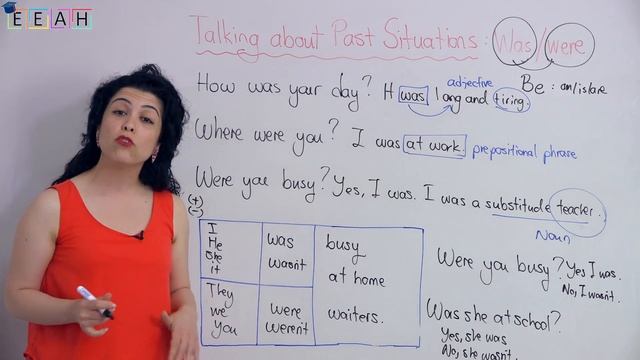 EEAH
Talking about Past Situations: Was/were
How was your day? H was long and tiring.
adjective
Be: am/is/are
Where were you? I was at work.
prepositional phrase
Were you busy? Yes, I was. I was a substitude teacher.
Noun
(+)
(-)
I
He
She
it
was
wasn't
busy
at home
They
we
You
were
weren't
waiters.
Were you busy? Yes I was.
No, I wasn't.
Was she at school?
Yes, she was
No, she wasn't.